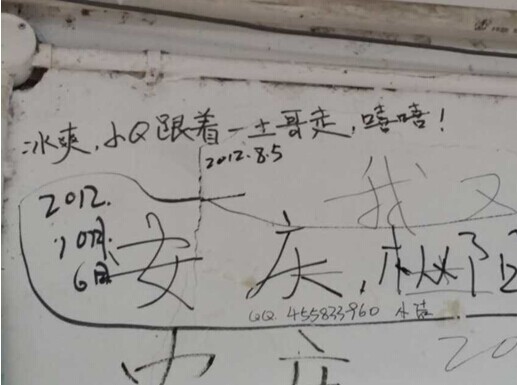 冰爽,小Q跟着一土哥走,嘻嘻!
2012.8.5
我又
2012.
10月
6日
安庆,
QQ 455833960
20